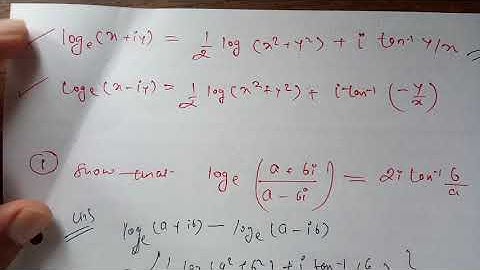 ✓ logₑ(x+iy) = 1/2 log (x²+y²) + i tan⁻¹ y/x
✓ logₑ(x-iy) = 1/2 log(x²+y²) + i tan⁻¹ (-y/x)
① Show that logₑ ((a+bi)/(a-bi)) = 2i tan⁻¹ b/a
logₑ(a+ib) - logₑ(a-ib)